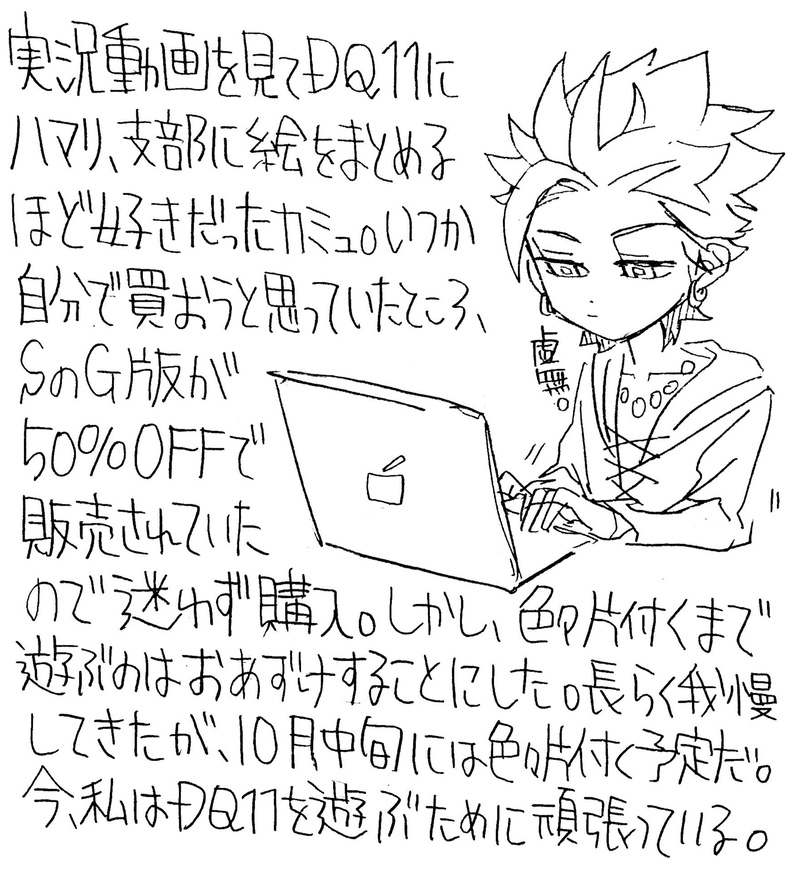 実況動画を見てDQ11に
ハマり、支部に絵をまとめる
ほど好きだったカミュ。いつか
自分で買おうと思っていたところ、
SのG版が
50%OFFで
販売されていた
ので迷わず購入。しかし、色々片付くまで
遊ぶのはおあずけすることにした。長らく我慢
してきたが、10月中旬には色々片付く予定だ。
今、私はDQ11を遊ぶために頑張っている。
虚無。